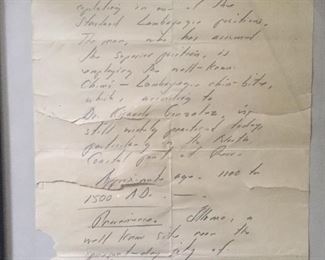 in one of the
Standard Lambayeque positions.
The man, who has assumed
the superior position, is
employing the well-known
Chimú - Lambayeque chin-bite,
which, according to
Dr. Ricardo Gonzalez, is
still widely practiced today,
particularly in the North
Coastal part of Peru.
Approximate age. 1100 to
1500 A.D.
Provenance. Illimo, a
well known site near the
present-day city of